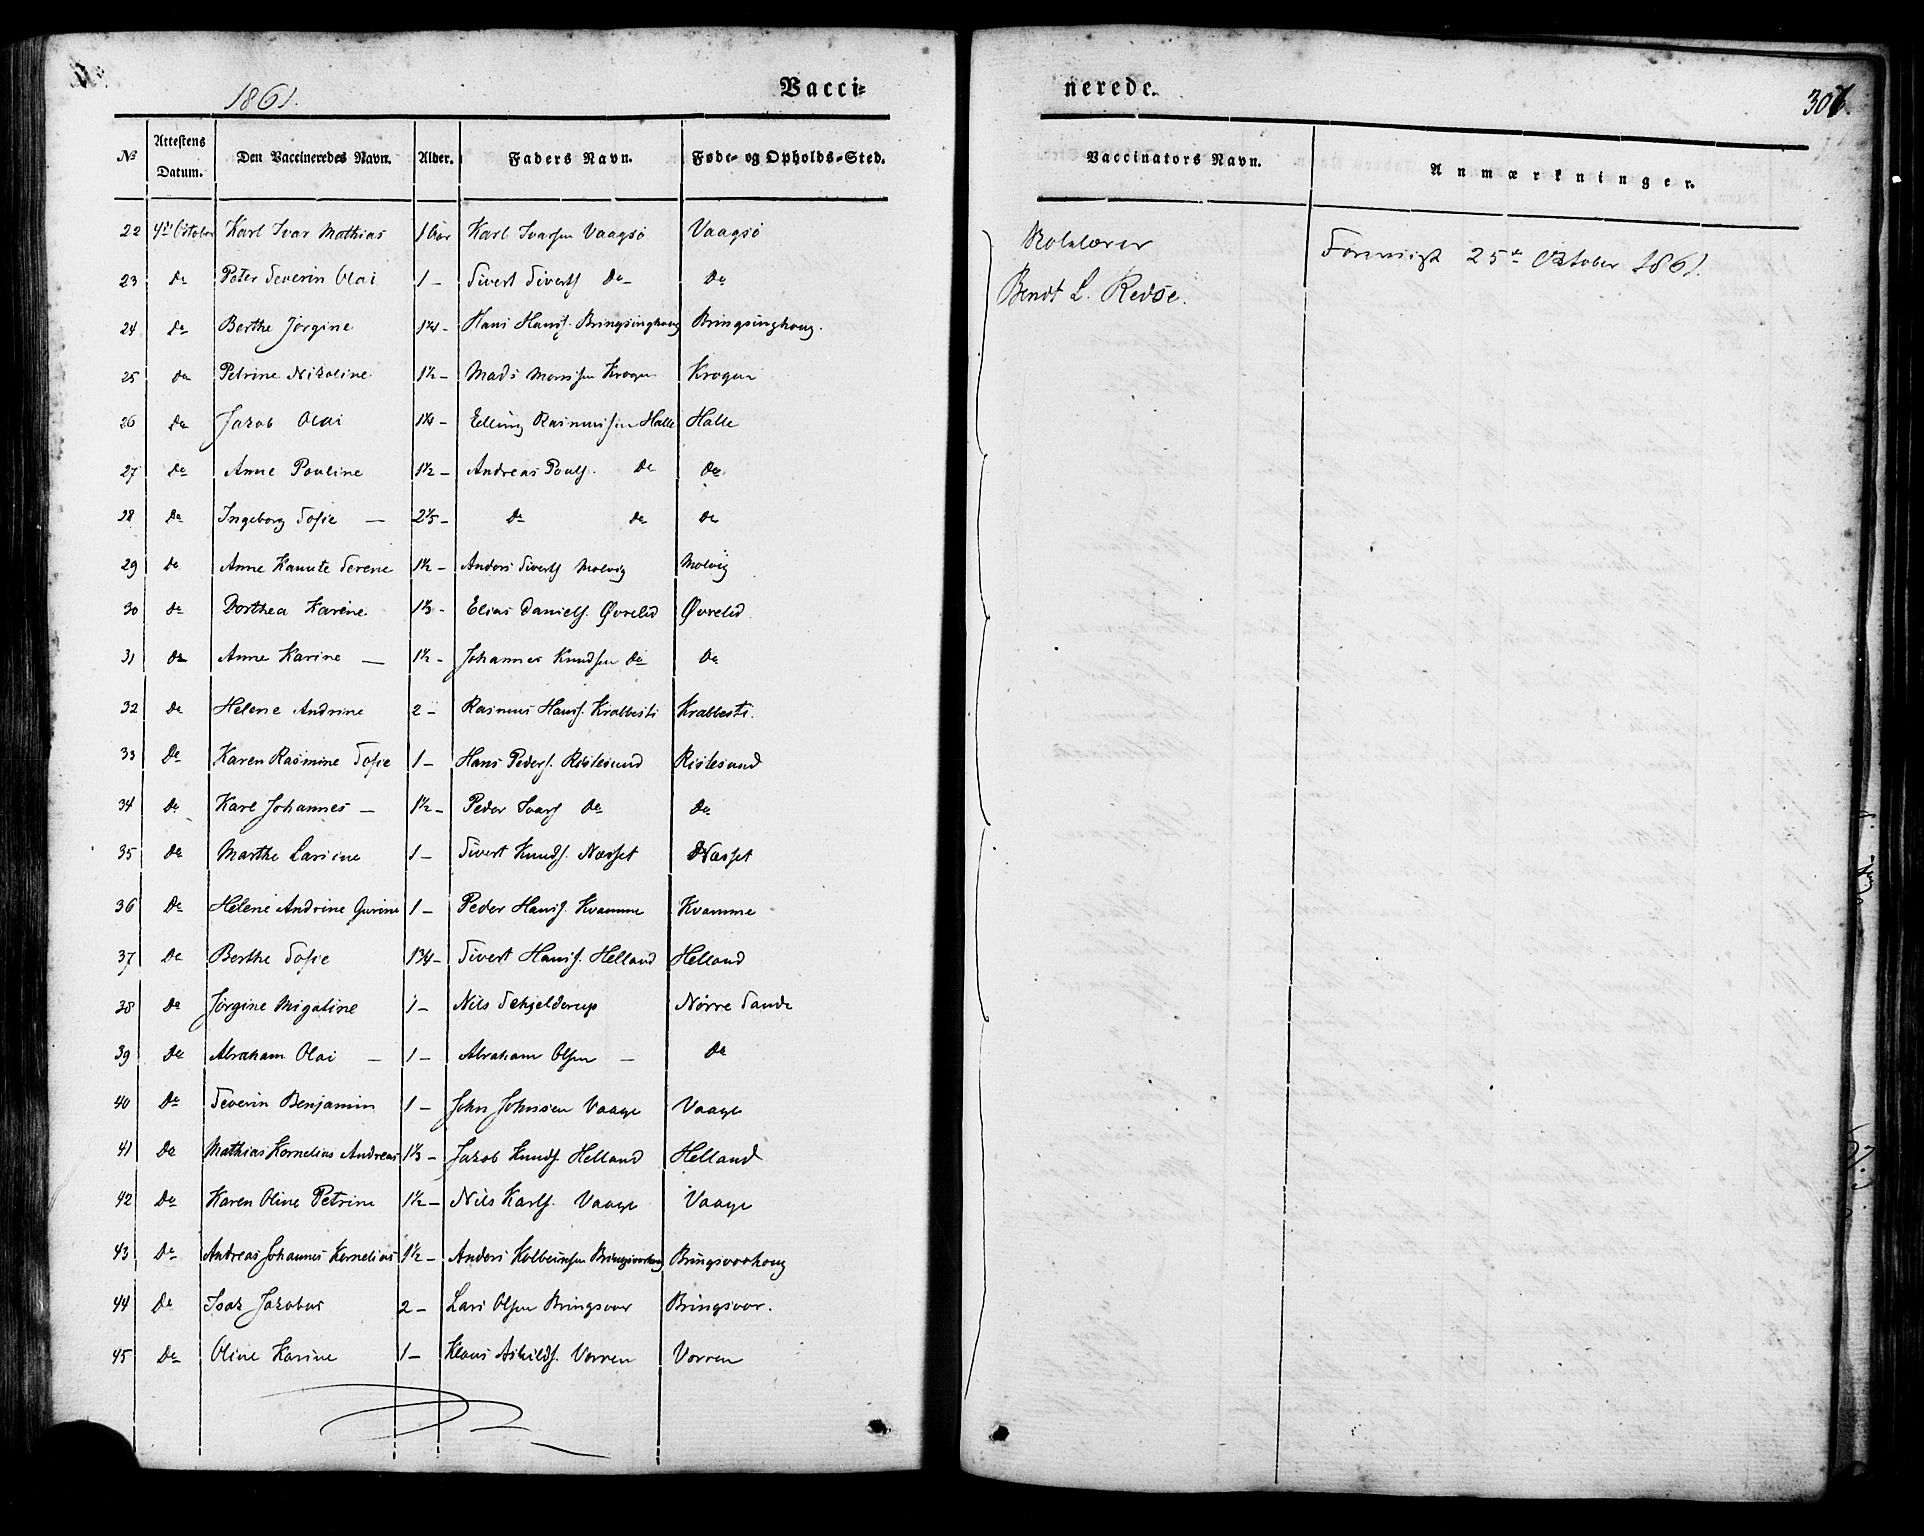 1861.
Vacci-
№ Attestens Datum. Den Vaccineredes Navn. Alder. Faders Navn. Føde- og Opholds-Sted.
22 4de October Karl Ivar Mathias 1 aar Karl Ivarsen Vaagsø Vaagsø
23 Do Peter Severin Olai 1 - Sivert Siverts Do Do
24 Do Berthe Jørgine 1¼ - Hans Hans. Bringsinghaug Bringsinghaug.
25 Do Petrine Nikoline 1½ - Mads Monssen Krogen Krogen
26 Do Jakob Olai 1¼ - Elling Rasmussen Halle Halle
27 Do Anne Pouline 1½ - Andreas Pouls. Do Do
28 Do Ingeborg Sofie — 2⅓ - Do Do Do
29 Do Anne Kanute Serene 1½ - Anders Siverts Molvig Molvig
30 Do Dorthea Karine 1⅓ - Elias Daniels. Øvrelid Øvrelid
31 Do Anne Karine — 1½ - Johannes Knudsen Do Do
32 Do Helene Andrine 2 - Rasmus Hans. Krabbesti Krabbesti.
33 Do Karen Rasmine Sofie 1 - Hans Peders. Rislesund Rislesund
34 Do Karl Johannes — 1½ - Peder Ivars Do Do
35 Do Marthe Larsine 1 - Sivert Knuds. Næsset Næsset
36 Do Helene Andrine Gurine 1 - Peder Hans. Kvamme Kvamme
37 Do Berthe Sofie 1¾ - Sivert Hans. Helland Helland
38 Do Jørgine Migaline 1 - Nils Schjelderup Nørre Sande
39 Do Abraham Olai — 1 - Abraham Olsen — Do
40 Do Severin Benjamin 1 - John Johnsen Vaage Vaage
41 Do Mathias Kornelius Andreas 1⅓ - Jakob Knuds. Helland Helland
42 Do Karen Oline Petrine 1½ - Nils Karls. Vaage Vaage
43 Do Andreas Johannes Kornelius 1½ - Anders Kolbeinsen Bringsvorhaug Bringsvorhaug
44 Do Isak Jakobus 2 - Lars Olsen Bringsvor Bringsvor.
45 Do Oline Karine 1 - Klaus Askilds. Vorren Vorren
nerede.
306.
Vaccinators Navn. Anmærkninger.
Bendt L. Redse.
25de Oktober 1861.